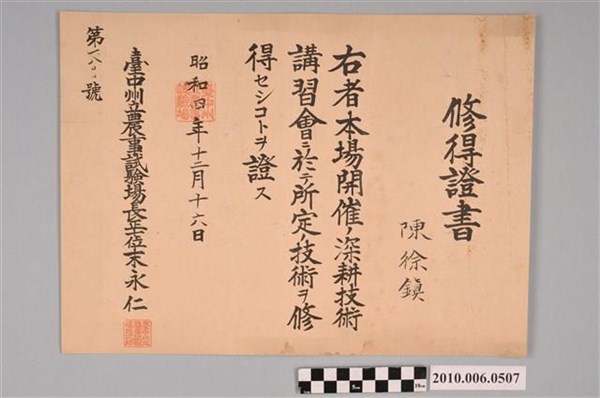 修得證書
陳徐鎮
右者本場開催ノ深耕技術
講習會ニ於テ所定ノ技術ヲ修
得セシコトヲ證ス
昭和四年十二月十六日
臺中州立農事試驗場長正七位末永仁
第一八〇號
2010.006.0507